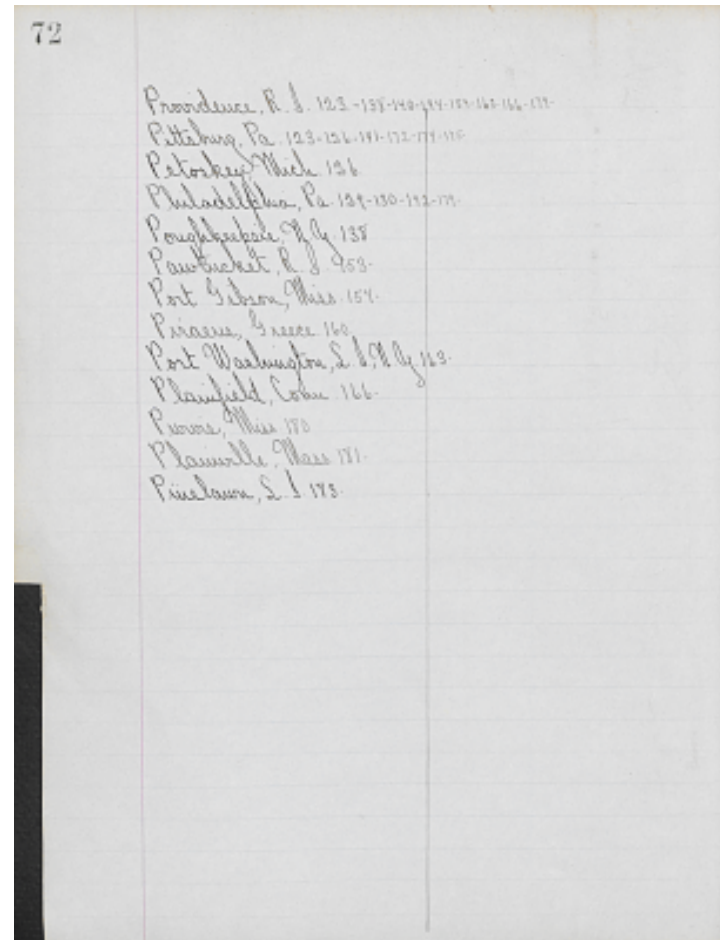 72
Providence, R. I. 123-138-140-144-154-165-166-179-
Pittsburg, Pa. 123-126-141-172-174-
Petoskey, Mich. 126
Philadelphia, Pa. 129-130-142-179-
Poughkeepsie, N.Y. 138
Pawtucket, R. I. 153-
Port Gibson, Miss. 154-
Piraeus, Greece. 160.
Port Washington, L. I, N.Y. 163-
Plainfield, Conn. 166-
Purvis, Miss. 180
Plainville, Mass. 181-
Pinelawn, L. I. 183-